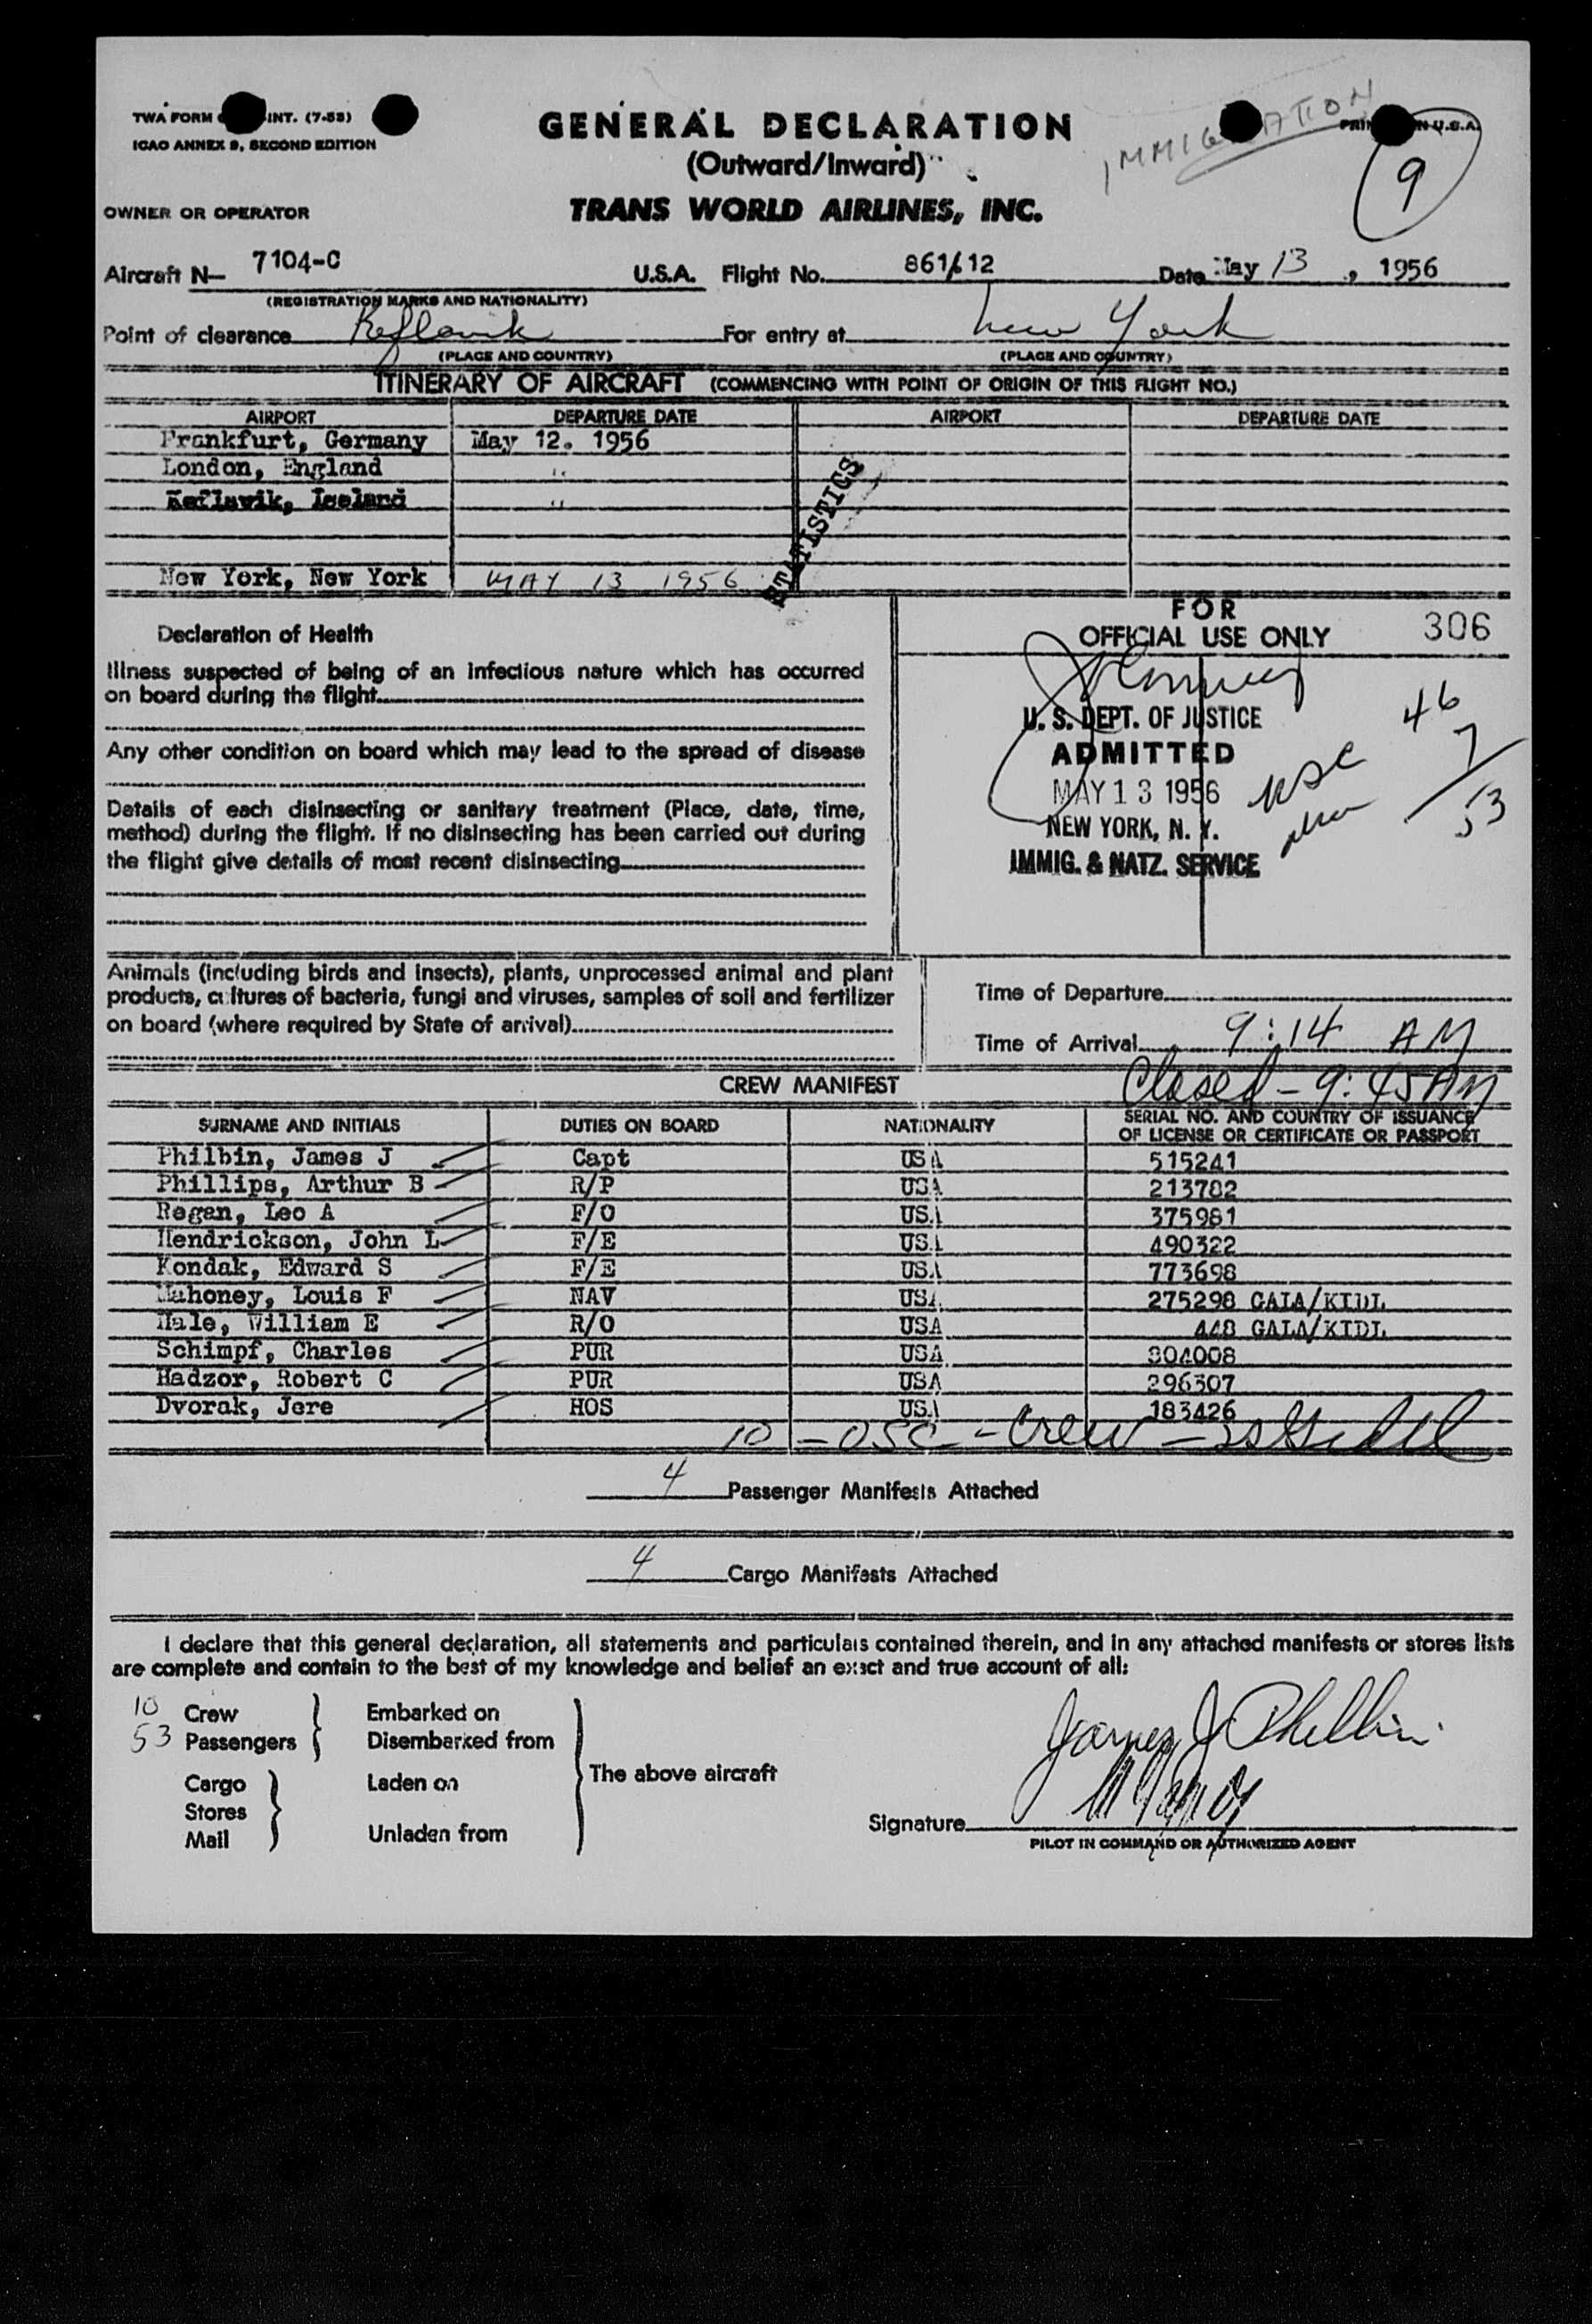 TWA FORM INT. (7-53)
ICAO ANNEX 9, SECOND EDITION
GENERAL DECLARATION
(Outward/Inward)
IMMIGRATION
PRIN IN U.S.A.
9
OWNER OR OPERATOR
TRANS WORLD AIRLINES, INC.
Aircraft N- 7104-C U.S.A. Flight No. 861/612 Date May 13, 1956
(REGISTRATION MARKS AND NATIONALITY)
Point of clearance Keflavik For entry at New York
(PLACE AND COUNTRY) (PLACE AND COUNTRY)
ITINERARY OF AIRCRAFT (COMMENCING WITH POINT OF ORIGIN OF THIS FLIGHT NO.)
AIRPORT DEPARTURE DATE AIRPORT DEPARTURE DATE
Frankfurt, Germany May 12. 1956
London, England "
Keflavik, Iceland "
New York, New York MAY 13 1956
STATISTICS
Declaration of Health
Illness suspected of being of an infectious nature which has occurred
on board during the flight
Any other condition on board which may lead to the spread of disease
Details of each disinsecting or sanitary treatment (Place, date, time,
method) during the flight. If no disinsecting has been carried out during
the flight give details of most recent disinsecting
FOR
OFFICIAL USE ONLY 306
U. S. DEPT. OF JUSTICE
ADMITTED
MAY 13 1956
NEW YORK, N. Y.
IMMIG. & NATZ. SERVICE
USC 46
7
53
Animals (including birds and insects), plants, unprocessed animal and plant
products, cultures of bacteria, fungi and viruses, samples of soil and fertilizer
on board (where required by State of arrival)
Time of Departure
Time of Arrival 9:14 AM
Closed - 9:45 AM
CREW MANIFEST
SURNAME AND INITIALS DUTIES ON BOARD NATIONALITY SERIAL NO. AND COUNTRY OF ISSUANCE
OF LICENSE OR CERTIFICATE OR PASSPORT
Philbin, James J Capt USA 515241
Phillips, Arthur B R/P USA 213782
Regan, Leo A F/O USA 375981
Hendrickson, John L F/E USA 490322
Kondak, Edward S F/E USA 773698
Mahoney, Louis F NAV USA 275298
Hale, William E R/O USA 448
Schimpf, Charles PUR USA 304008
Hadzor, Robert C PUR USA 296307
Dvorak, Jere HOS USA 183426
10 - USC - Crew -
4 Passenger Manifests Attached
4 Cargo Manifests Attached
I declare that this general declaration, all statements and particulars contained therein, and in any attached manifests or stores lists
are complete and contain to the best of my knowledge and belief an exact and true account of all:
10 Crew Embarked on
53 Passengers Disembarked from
Cargo Laden on The above aircraft
Stores
Mail Unladen from
James J Philbin
Signature
PILOT IN COMMAND OR AUTHORIZED AGENT